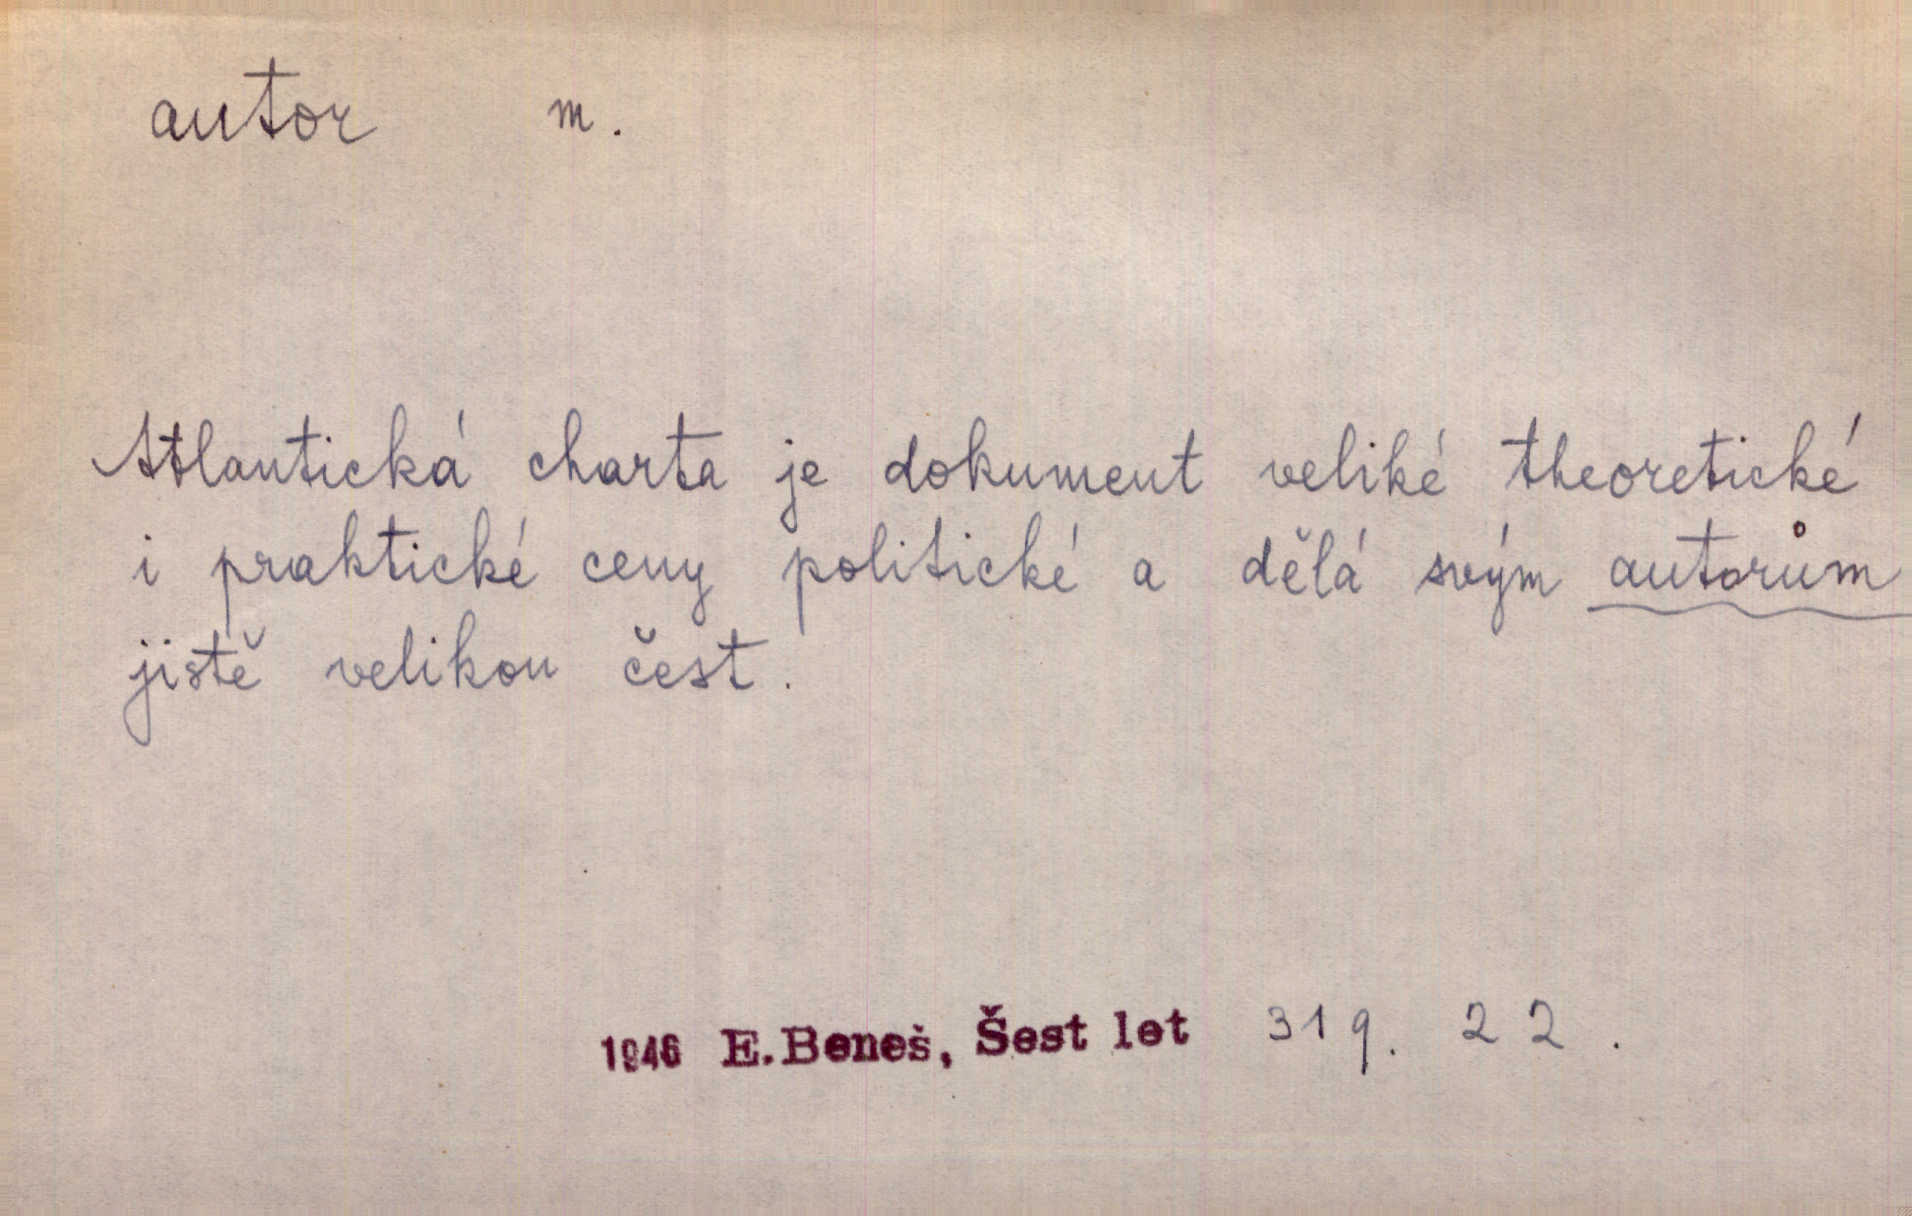 autor m.
Atlantická charta je dokument veliké theoretické
i praktické ceny politické a dělá svým autorům
jistě velikou čest.
1946 E. Beneš, Šest let 319. 22.